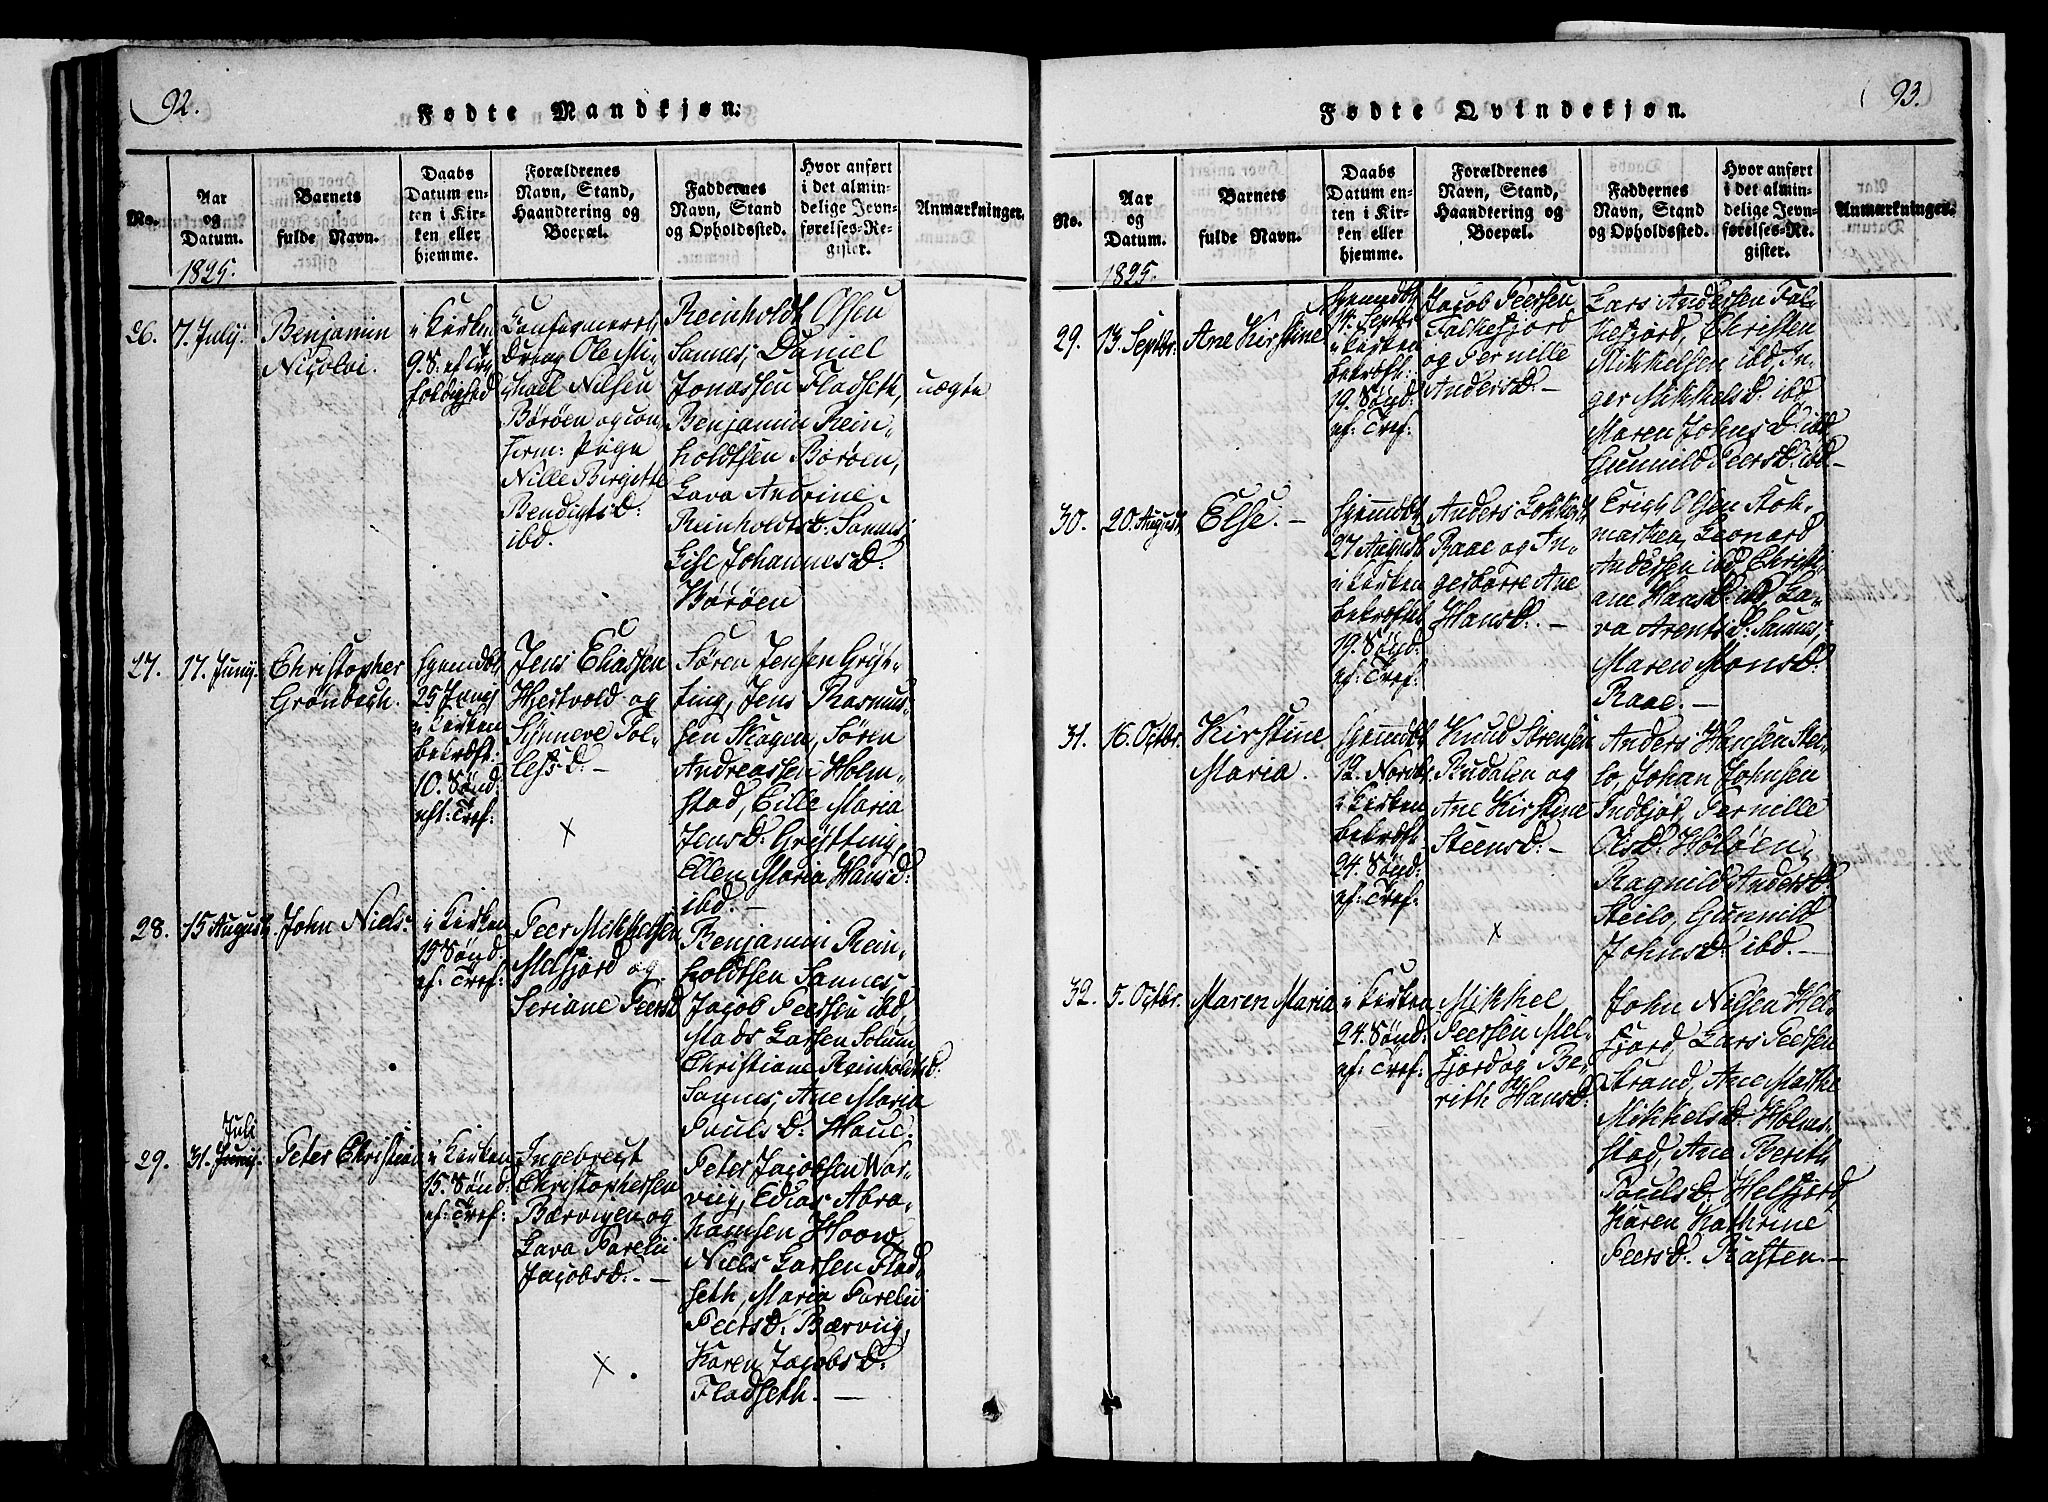 92.
Fødte Mandkjøn:
No.
Aar
og
Datum.
1825.
Barnets
fulde Navn.
Daabs
Datum en-
ten i Kir-
ken eller
hjemme.
Forældrenes
Navn, Stand,
Haandtering og
Boepæl.
Faddernes
Navn, Stand
og Opholdssted.
Hvor anført
i det almin-
delige Jevn-
førelses-Re-
gister.
Anmærkninger.
26.
7. July:
Benjamin
Nicolai.
i Kirken
9. S: ef Tre
foldighed
Ole Mi-
chael Nilsen
Børøen og con-
firm: Pige
Nille Birgitte
Bendigtsd:
ibd.
Reinholdt Olsen
Sannes, Daniel
Jonassen Fladseth,
Benjamin Rein-
holdtsen Børøen,
Lava Andrine
Reinholdtsd: Sannes,
Lise Johannesd:
Børøen
uægte
27.
17. Junij.
Christopher
Grønbech.
hjemdbt
25 Junij
i Kirken
bekræft:
10. Sønd:
eft: Tref:
Jens Eliassen
Hjertvold og
Synneve Tol-
lefsd: –
×
Søren Jensen Grytt-
ting, Jens Rasmus-
sen Skogen, Søren
Andreassen Holm-
stad, Cille Maria
Jensd: Grytting,
Ellen Maria Hansd:
ibd. –
28.
15 August.
John Niels:
i Kirken
15 Sønd:
ef: Tref:
Peer Mikkelsen
Melfjord og
Seriane Peersd
Benjamin Rein-
holdtsen Sannes,
Jacob Peersen ibd,
Mads Larsen Solum,
Christiane Reinholdtsd:
Sannes, Ane Maria
Poulsd: Houe.
29.
Juli
31. Junij.
Peter Christian
i Kirken
15. Sønd:
ef: Tref:
Ingebregt
Christophersen
Bærvigen og
Lava Parelii
Jacobsd: –
×
Peter Jacobsen Vor-
vig, Edias Abra-
hamsen Hoow,
Niels Larsen Flad-
seth, Maria Parelii
Peersd: Bærviig,
Karen Jacobsd:
Fladseth. –
93.
Fødte Qvindekjøn.
No.
Aar
og
Datum.
1825.
Barnets
fulde Navn.
Daabs
Datum en-
ten i Kir-
ken eller
hjemme.
Forældrenes
Navn, Stand,
Haandtering og
Boepæl.
Faddernes
Navn, Stand
og Opholdssted.
Hvor anført
i det almin-
delige Jevn-
førelses-Re-
gister.
Anmærkninger.
29.
13. Septbr.
Ane Kirstine
hjemdbt
14. Septbr
i Kirken
bekræft:
19. Sønd:
ef: Tref:
Jacob Peersen
Falkefjord
og Pernille
Andersd. –
Lars Andersen Fal-
kefjord, Christen
Mikkelsen ibd, In-
ger Mikkelsd: ibd,
Maren Johnsd: ibd
Gunnild Peersd: ibd–
30.
20. August,
Else. –
hjemdbt
27 August
i Kirken
bekræftet
19. Sønd:
ef: Tref:
Anders Lokkert
Raae og In-
geborre Ane
Hansd. –
Erich Olsen Stok-
marken, Leonard
Andersen ibd, Christi-
ane Hansd: ibd, La-
va Arentsd: Sannes,
Maren Monsd:
Raae. –
31.
16. Octbr.
Kirstine
Maria.
hjemdbt
12. Novbr
i Kirken
bekræft:
24. Sønd:
ef: Tref:
Knud Sørensen
Rudalen og
Ane Kirstine
Steensd: –
×
Anders Hansen Stei-
lo, Johan Johnsen
Indbjør, Pernille
Olsd: Holøen,
Ragnild Andersd:
Steilo, Gunnild
Johnsd: ibd. –
32.
5. Octbr.
Maren Maria
i Kirken
24. Sønd:
ef: Tref:
Mikkel
Peersen Mel-
fjord og Be-
rith Hansd:
John Nilsen Hel-
fjord, Lars Peersen
Strand, Ane Marthe
Mikkelsd: Holm-
stad, Ane Berith
Poulsd: Helfjord,
Karen Kathrine
Peersd: Rasten. –